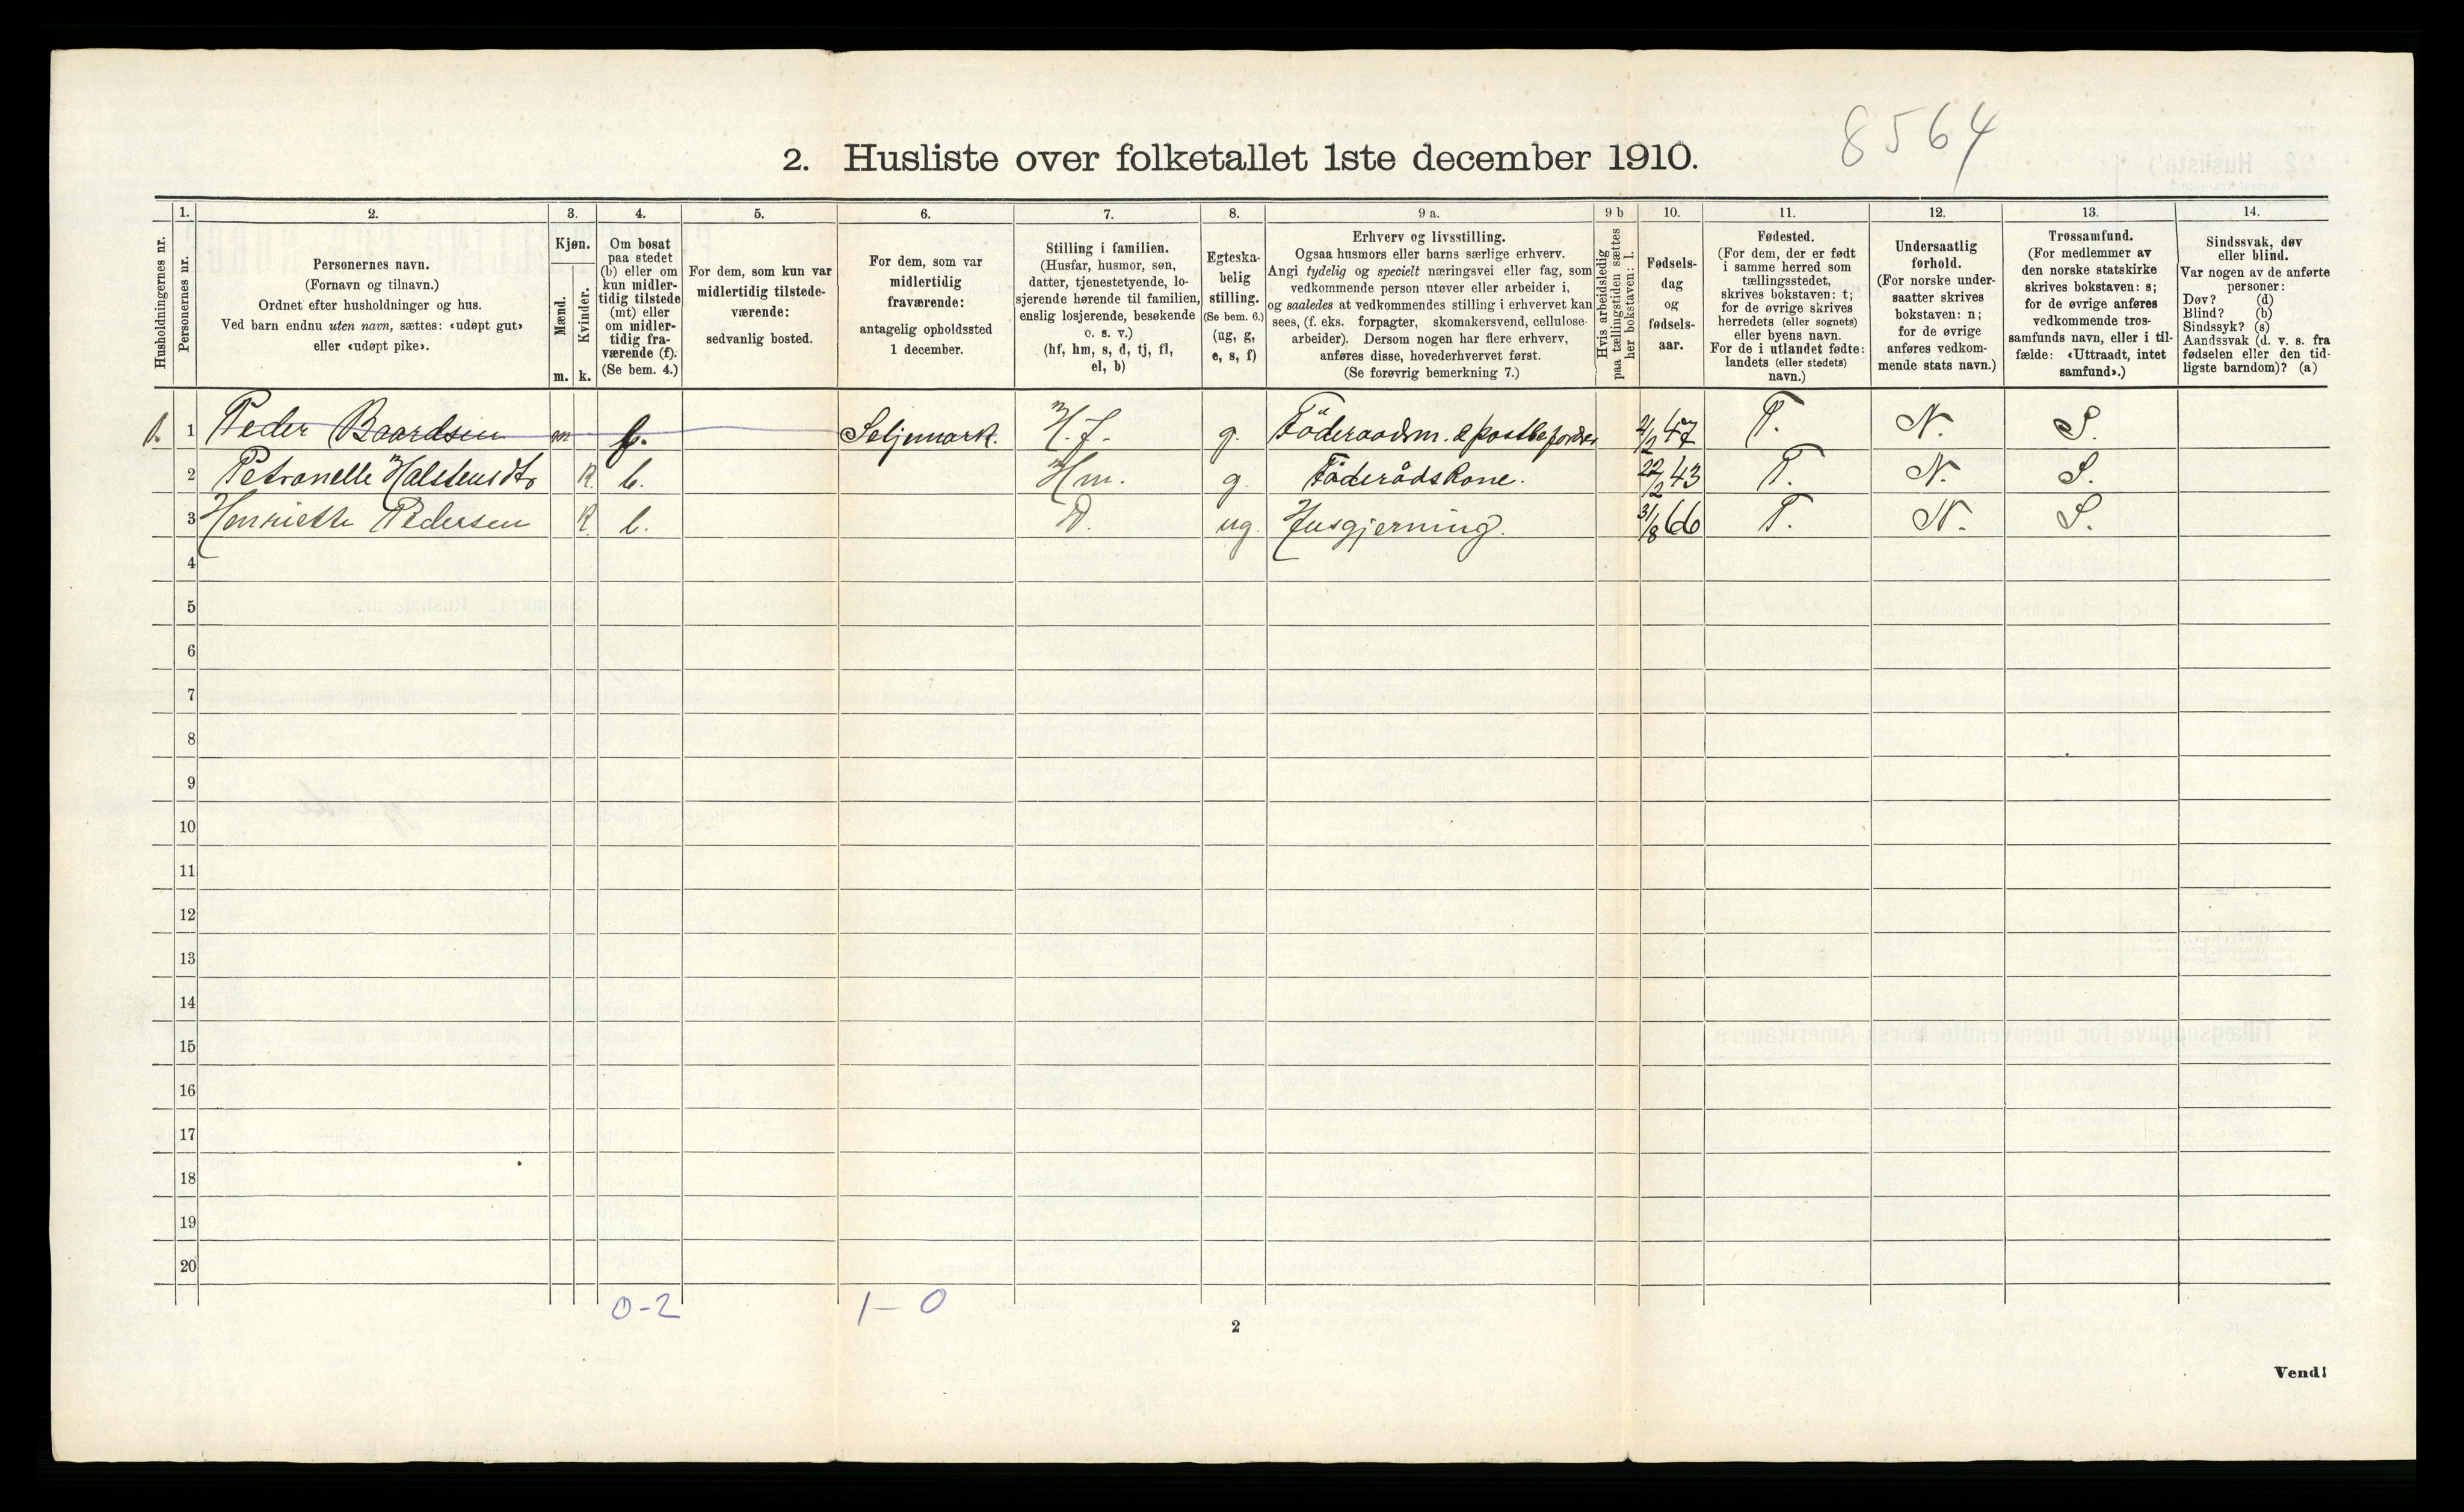 8564
2. Husliste over folketallet 1ste december 1910.
Husholdningernes nr.
1.
Personernes nr.
2.
Personernes navn.
(Fornavn og tilnavn.)
Ordnet efter husholdninger og hus.
Ved barn endnu uten navn, sættes: «udøpt gut»
eller «udøpt pike».
3.
Kjøn.
Mænd.
Kvinder.
m. k.
4.
Om bosat
paa stedet
(b) eller om
kun midler-
tidig tilstede
(mt) eller
om midler-
tidig fra-
værende (f).
(Se bem. 4.)
5.
For dem, som kun var
midlertidig tilstede-
værende:
sedvanlig bosted.
6.
For dem, som var
midlertidig
fraværende:
antagelig opholdssted
1 december.
7.
Stilling i familien.
(Husfar, husmor, søn,
datter, tjenestetyende, lo-
sjerende hørende til familien,
enslig losjerende, besøkende
o. s. v.)
(hf, hm, s, d, tj, fl,
el, b)
8.
Egteska-
belig
stilling.
(Se bem. 6.)
(ug, g,
e, s, f)
9 a.
Erhverv og livsstilling.
Ogsaa husmors eller barns særlige erhverv.
Angi tydelig og specielt næringsvei eller fag, som
vedkommende person utøver eller arbeider i,
og saaledes at vedkommendes stilling i erhvervet kan
sees, (f. eks. forpagter, skomakersvend, cellulose-
arbeider). Dersom nogen har flere erhverv,
anføres disse, hovederhvervet først.
(Se forøvrig bemerkning 7.)
9 b
Hvis arbeidsledig
paa tællingstiden sættes
her bokstaven: l.
10.
Fødsels-
dag
og
fødsels-
aar.
11.
Fødested.
(For dem, der er født
i samme herred som
tællingsstedet,
skrives bokstaven: t;
for de øvrige skrives
herredets (eller sognets)
eller byens navn.
For de i utlandet fødte:
landets (eller stedets)
navn.)
12.
Undersaatlig
forhold.
(For norske under-
saatter skrives
bokstaven: n;
for de øvrige
anføres vedkom-
mende stats navn.)
13.
Trossamfund.
(For medlemmer av
den norske statskirke
skrives bokstaven: s;
for de øvrige anføres
vedkommende tros-
samfunds navn, eller i til-
fælde: «Uttraadt, intet
samfund».)
14.
Sindssvak, døv
eller blind.
Var nogen av de anførte
personer:
Døv? (d)
Blind? (b)
Sindssyk? (s)
Aandssvak (d. v. s. fra
fødselen eller den tid-
ligste barndom)? (a)
1 Peder Baardsen m f. Seljemark. H.f. g. Föderaadsm. & postbefordrer 2/2 47 T. N. S.
2 Petronelle Halstensdtr K. b. Hm. g. Föderådskone. 22/2 43 T. N. S.
3 Henriette Pedersen K. b. D. ug. Husgjerning. 31/8 66 T. N. S.
4
5
6
7
8
9
10
11
12
13
14
15
16
17
18
19
20
0-2 1-0
2
Vend!